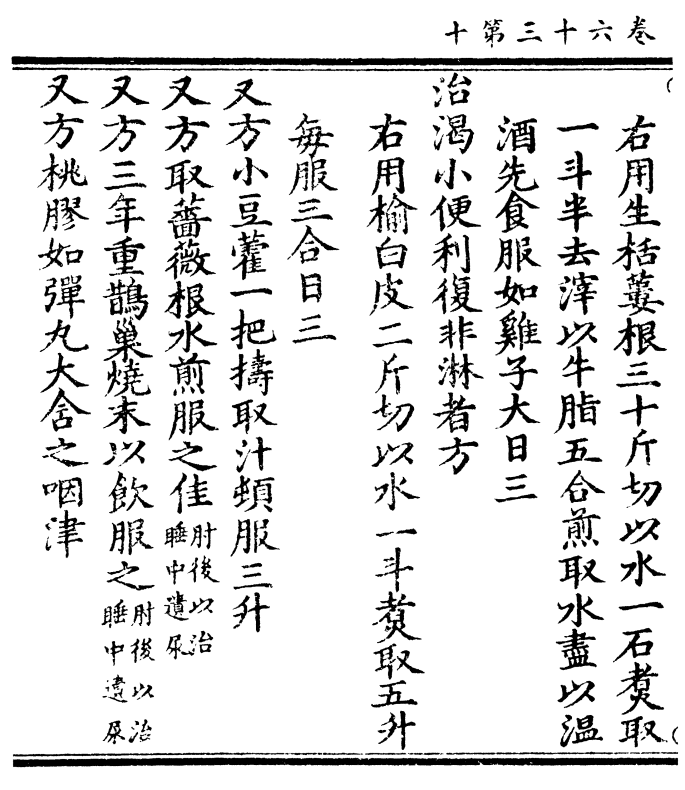 卷六十三第十
右用生栝蔞根三十斤切以水一石煑取
一斗半去滓以牛脂五合煎取水盡以温
酒先食服如雞子大日三
治渴小便利復非淋者方
右用榆白皮二斤切以水一斗煑取五升
每服三合日三
又方小豆藿一把擣取汁頓服三升
又方取薔薇根水煎服之佳肘後以治睡中遺尿
又方三年重鵲巢燒末以飲服之肘後以治睡中遺尿
又方桃膠如彈丸大含之咽津